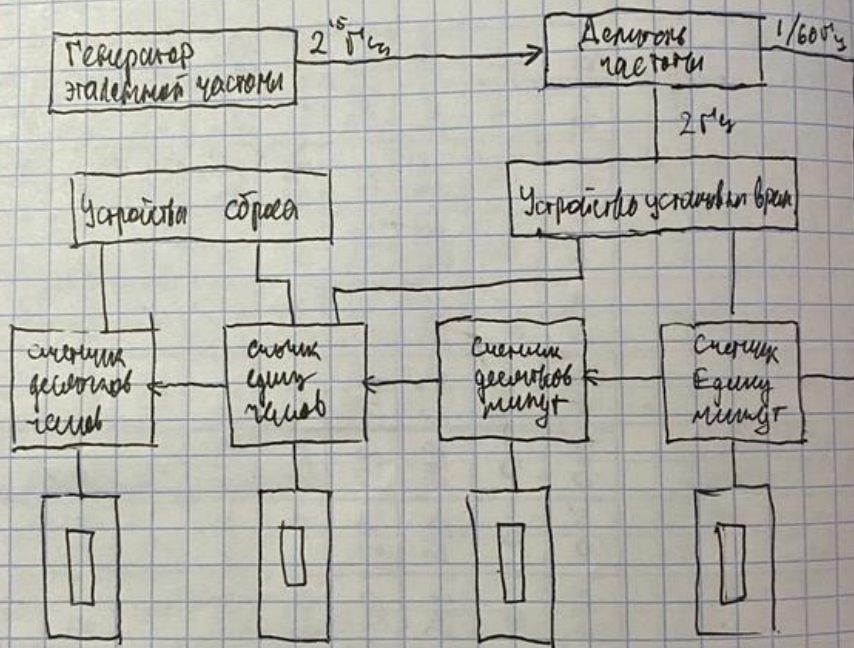 Генератор
эталонной частоты
2^15 Гц
Делитель
частоты
1/60 Гц
2 Гц
Устройство сброса
Устройство установки врем
счетчик
десятков
часов
счетчик
единиц
часов
Счетчик
десятков
минут
Счетчик
Единиц
минут